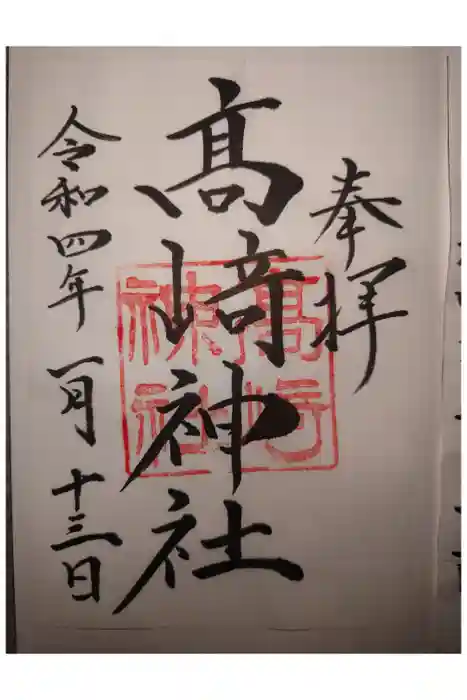 奉拝
髙﨑神社
令和四年一月十三日
髙﨑
神社